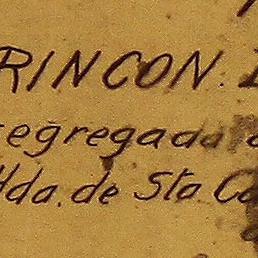 RINCON.
segregada
Hda. de Sta Ca